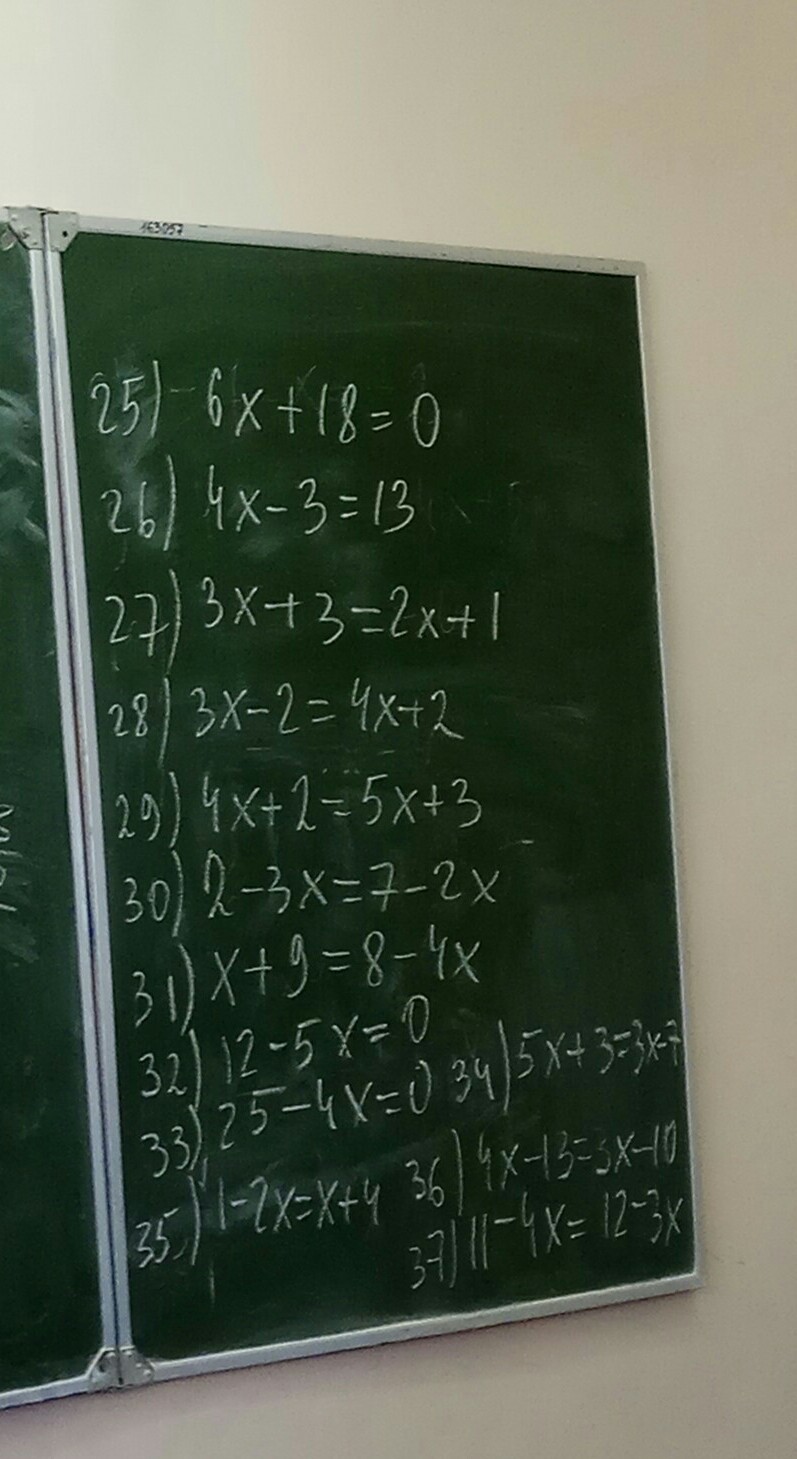 163057
25) -6x+18=0
26) 4x-3=13
27) 3x+3=2x+1
28) 3x-2=4x+2
29) 4x+2=5x+3
30) 2-3x=7-2x
31) x+9=8-4x
32) 12-5x=0
33) 25-4x=0
34) 5x+3=3x-7
35) 1-2x=x+4
36) 4x-13=3x-10
37) 11-4x=12-3x